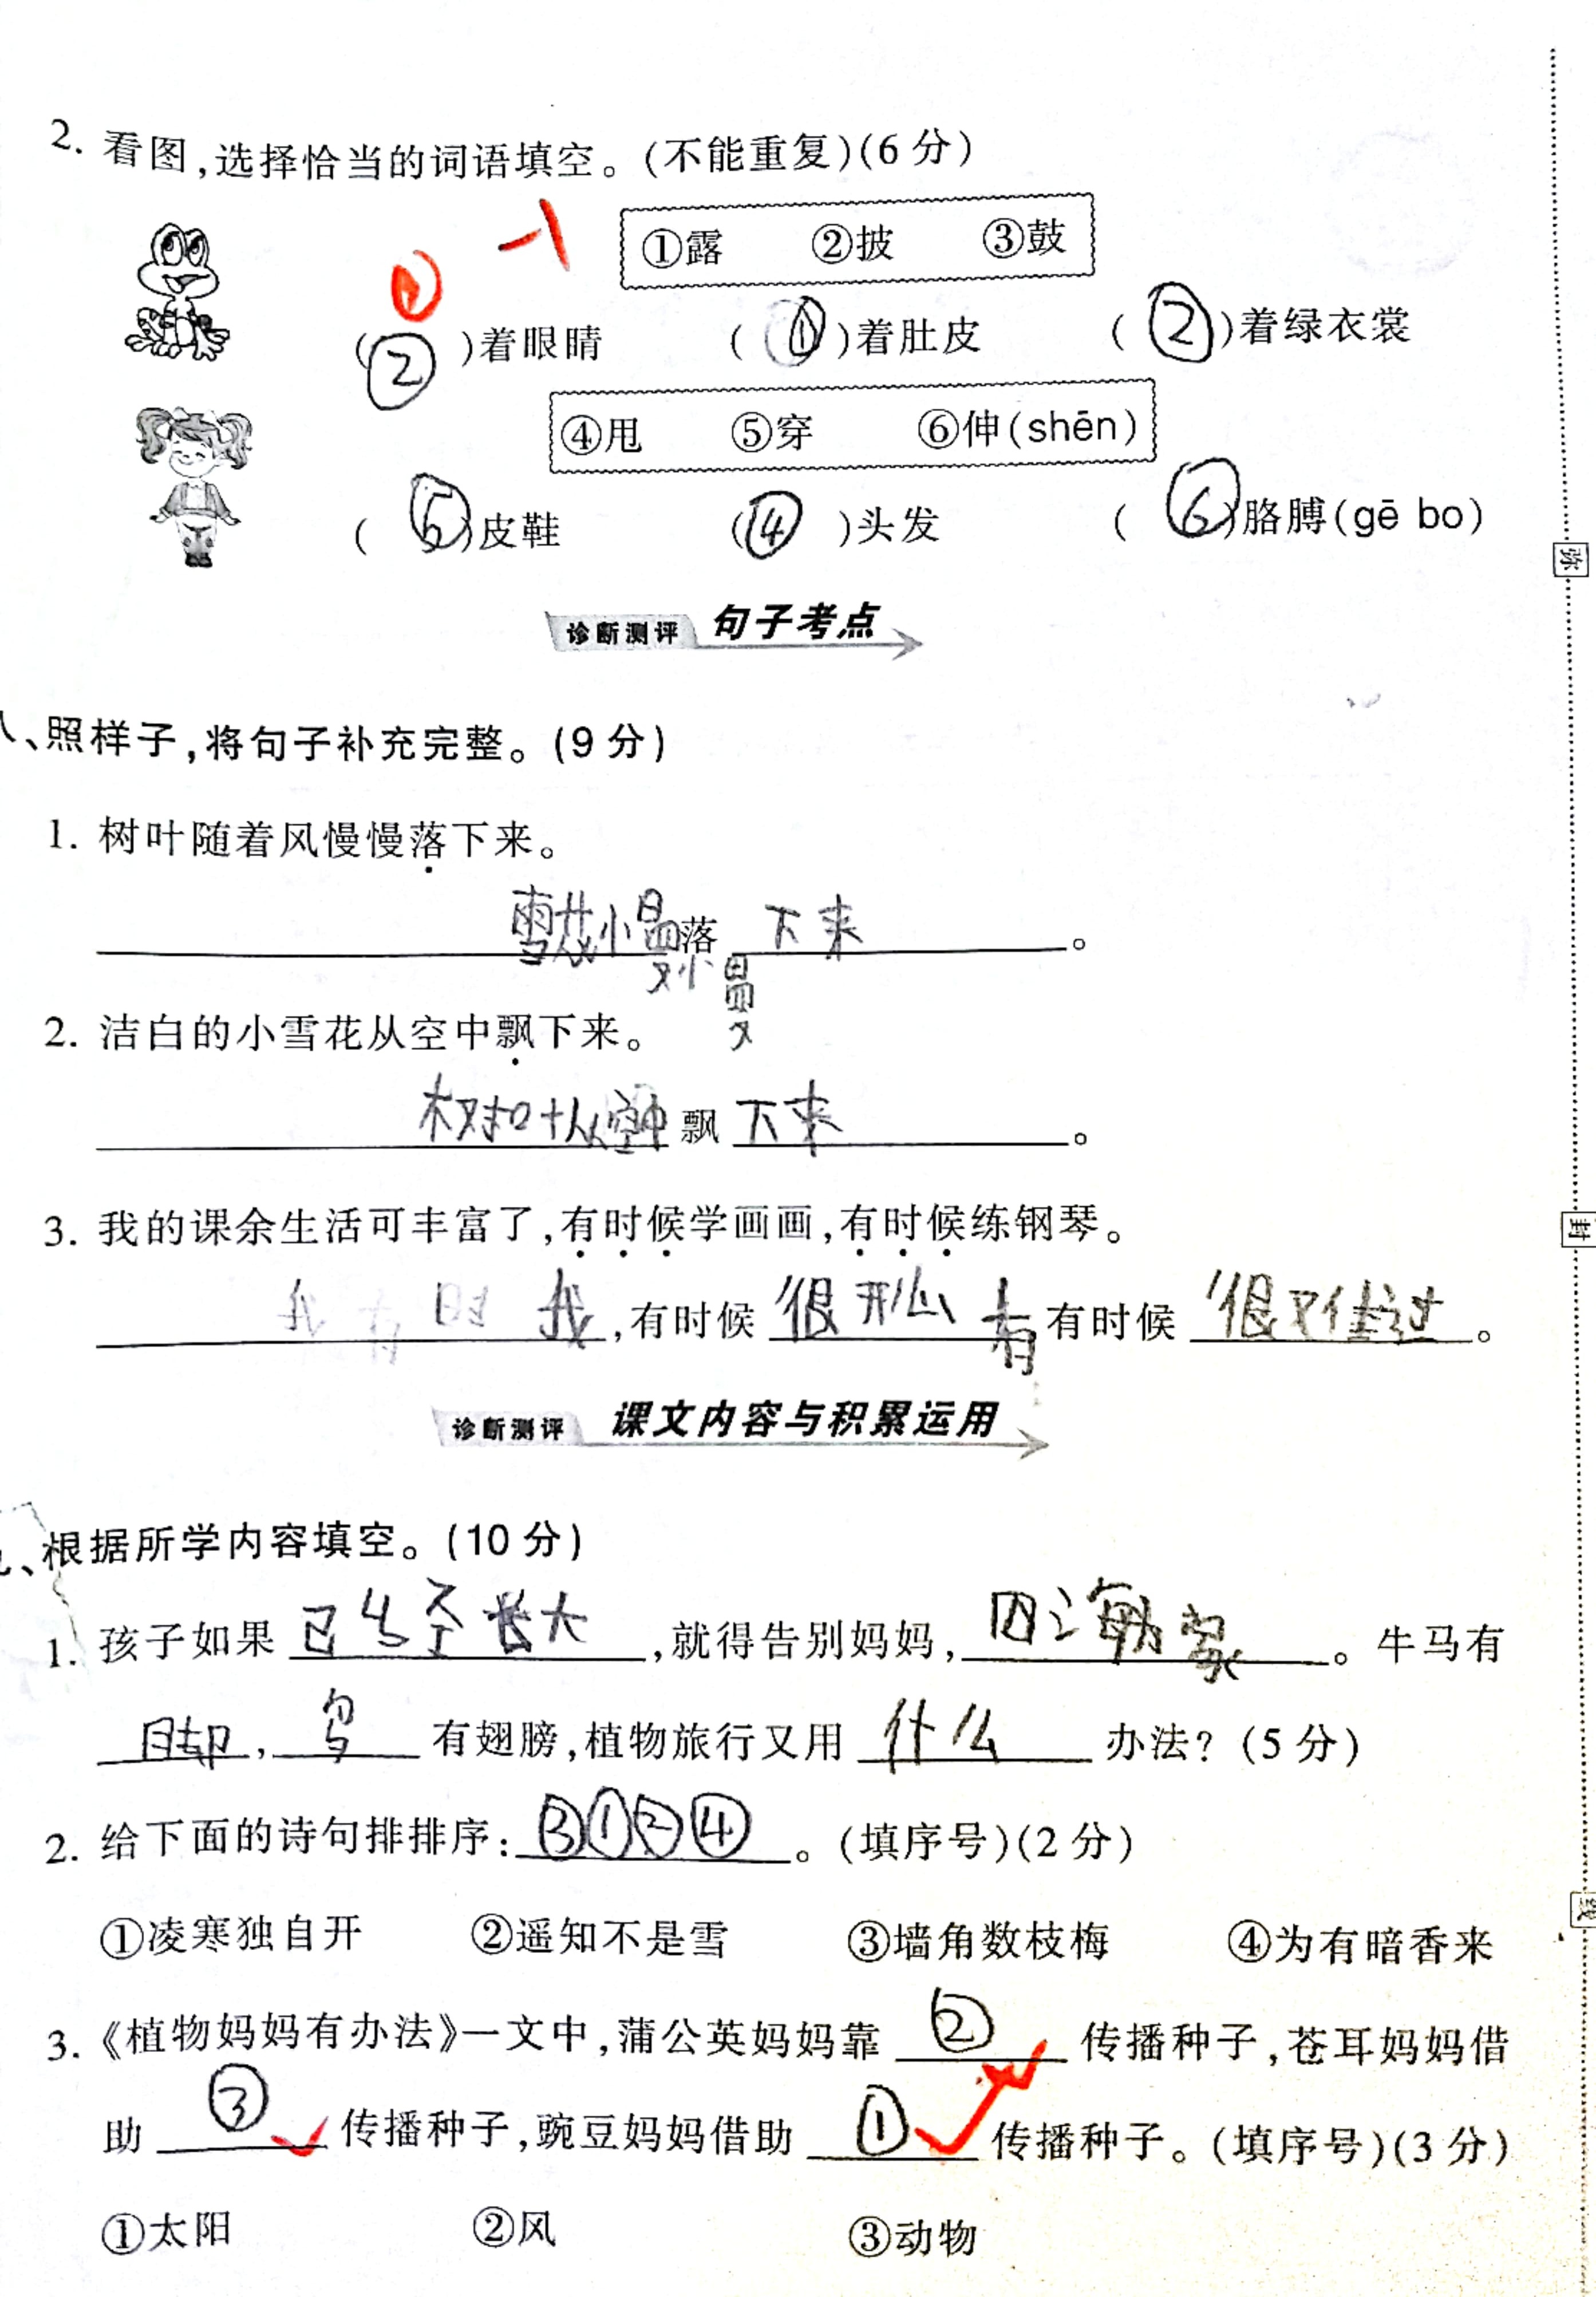 2. 看图,选择恰当的词语填空。(不能重复)(6分)
-1
①露 ②披 ③鼓
(②)着眼睛 (①)着肚皮 (②)着绿衣裳
④甩 ⑤穿 ⑥伸(shēn)
(⑤)皮鞋 (④)头发 (⑥)胳膊(gē bo)
诊断测评 句子考点
、照样子,将句子补充完整。(9分)
1. 树叶随着风慢慢落下来。
雪花慢落 下来。
慢
2. 洁白的小雪花从空中飘下来。
树叶从空中飘下来。
3. 我的课余生活可丰富了,有时候学画画,有时候练钢琴。
我有时 我,有时候 很开心 有 有时候 很难过。
诊断测评 课文内容与积累运用
、根据所学内容填空。(10分)
1. 孩子如果 已经长大,就得告别妈妈,四海为家。牛马有
脚,鸟 有翅膀,植物旅行又用 什么 办法?(5分)
2. 给下面的诗句排排序:③①②④。(填序号)(2分)
①凌寒独自开 ②遥知不是雪 ③墙角数枝梅 ④为有暗香来
3.《植物妈妈有办法》一文中,蒲公英妈妈靠 ② 传播种子,苍耳妈妈借
助 ③ 传播种子,豌豆妈妈借助 ① 传播种子。(填序号)(3分)
①太阳 ②风 ③动物
弥
封
线